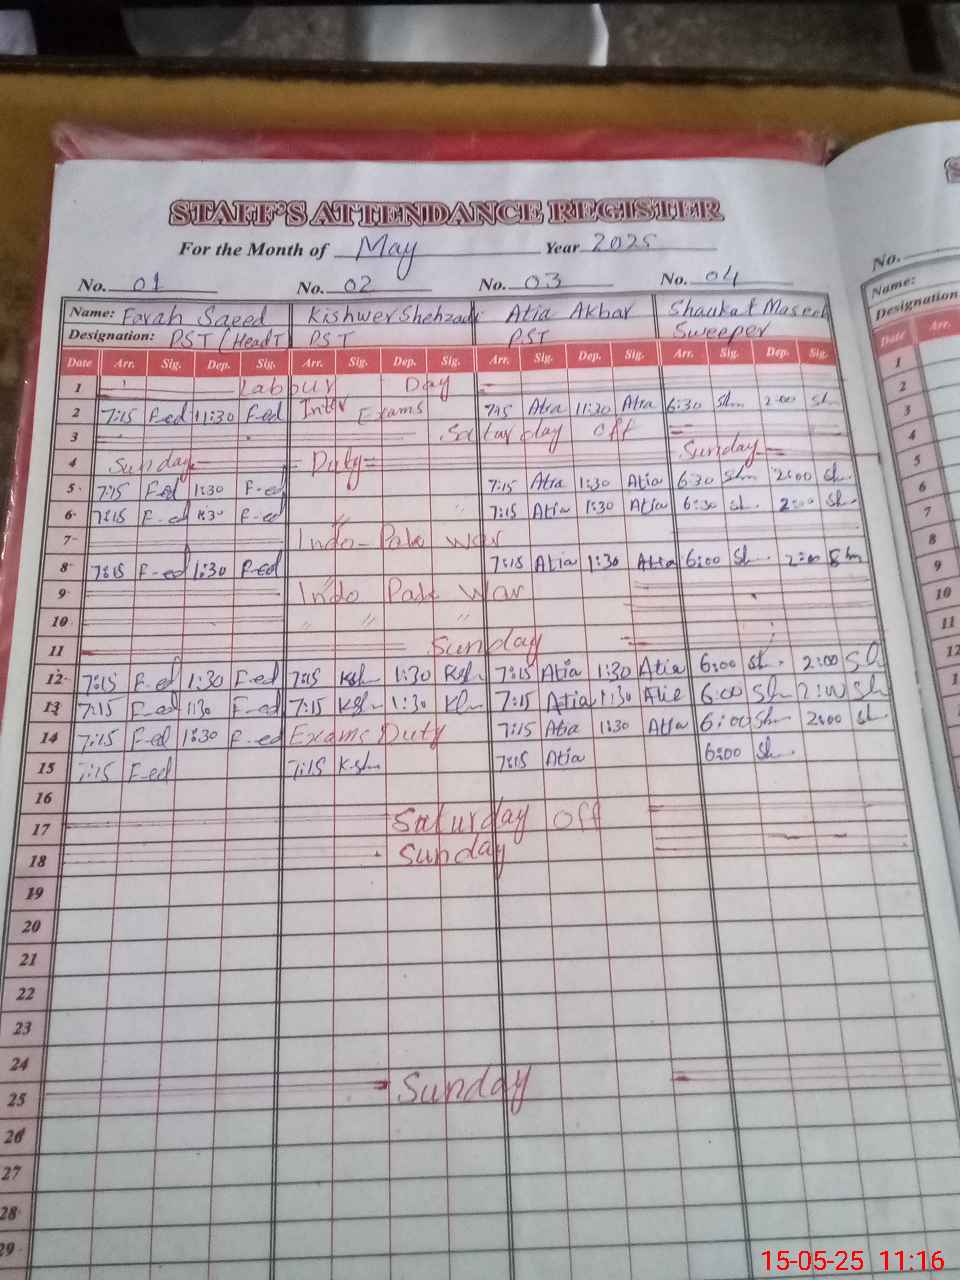 STAFF'S ATTENDANCE REGISTER
For the Month of May Year 2025
No. 01 No. 02 No. 03 No. 04 No.
Name: Farah Saeed Kishwer Shehzadi Atia Akbar Shaukat Maseeh Name:
Designation: PST/HeadT PST PST Sweeper Designation
Date Arr. Sig. Dep. Sig. Arr. Sig. Dep. Sig. Arr. Sig. Dep. Sig. Arr. Sig. Dep. Sig. Date Arr.
1 Labour Day 1
2 7:15 F-ed 11:30 F-ed Inter Exams 7:15 Atia 11:30 Atia 6:30 Sh 2:00 Sh 2
3 Saturday off 3
4 Sunday Duty Sunday 4
5 7:15 F-ed 1:30 F-ed 7:15 Atia 1:30 Atia 6:30 Shm 2:00 Sh. 5
6 7:15 F-ed 1:30 F-ed " " 7:15 Atia 1:30 Atia 6:30 Sh. 2:00 Sh. 6
7 Indo-Pak war 7
8 7:15 F-ed 1:30 F-ed 7:15 Atia 1:30 Atia 6:00 Sh 2:00 Shm 8
9 Indo Pak War 9
10 " " " 10
11 Sunday 11
12 7:15 F-ed 1:30 F-ed 7:15 Ksh 1:30 Ksh 7:15 Atia 1:30 Atia 6:00 Sh. 2:00 Sh 12
13 7:15 F-ed 1:30 F-ed 7:15 Ksh 1:30 Ksh 7:15 Atia 1:30 Atia 6:00 Sh 2:00 Sh
14 7:15 F-ed 1:30 F-ed Exams Duty 7:15 Atia 1:30 Atia 6:00 Shm 2:00 Sh
15 7:15 F-ed 7:15 Ksh 7:15 Atia 6:00 Sh.
16
17 Saturday off
18 Sunday
19
20
21
22
23
24
25 Sunday
26
27
28
29
15-05-25 11:16